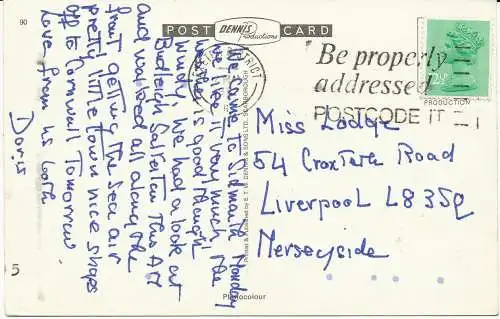 90
POST CARD
DENNIS
Productions
We came to Sidmouth Monday
we like it very much, the
weather is good though
windy, we had a look at
Budleigh Salterton this A/T
and walked all along the
front getting the sea air
pretty little town nice shops
off to Cornwall Tomorrow
Love from us both
Doris
5
DISTRICT
Be properly
addressed
POSTCODE IT
Miss Lodge
54 Croxteth Road
Liverpool L8 3SQ
Merseyside
Printed & Published by E. T. W. DENNIS & SONS LTD., SCARBOROUGH
PRODUCTION
Photocolour